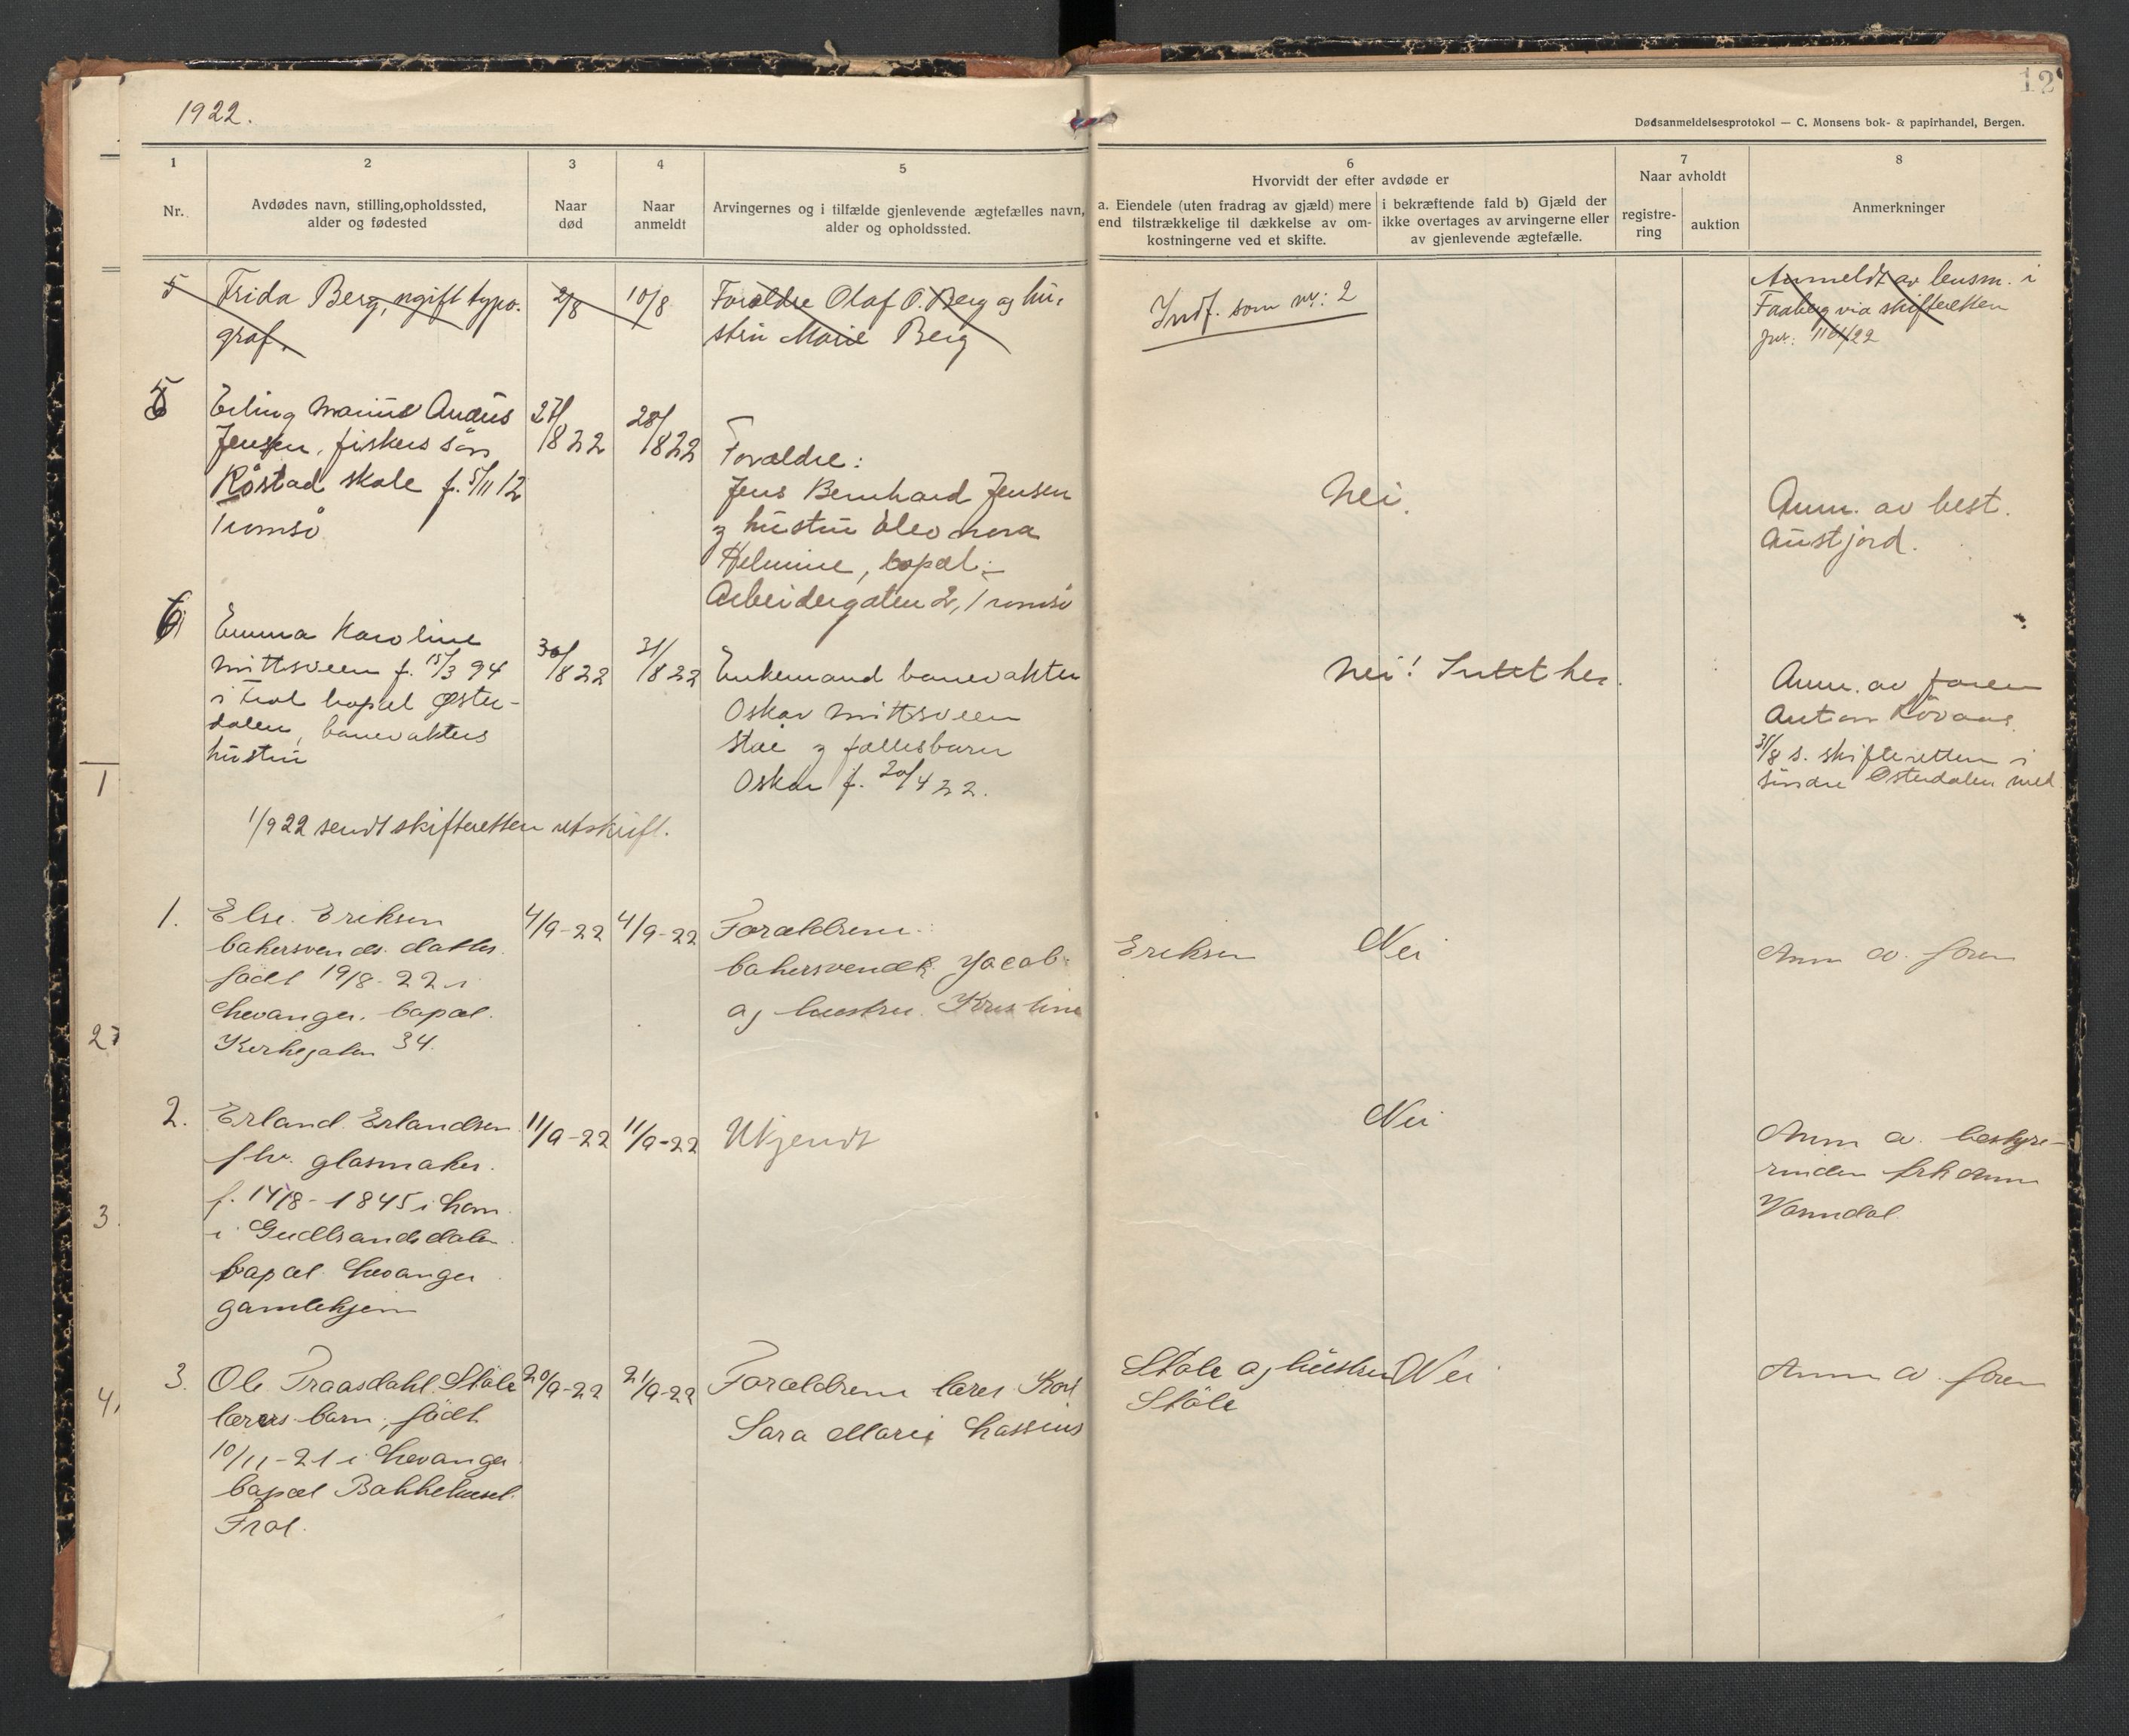 1922.
12
Dødsanmeldelsesprotokol — C. Monsens bok- & papirhandel, Bergen.
1
Nr.
2
Avdødes navn, stilling, opholdssted,
alder og fødested
3
Naar
død
4
Naar
anmeldt
5
Arvingernes og i tilfælde gjenlevende ægtefælles navn,
alder og opholdssted.
6
Hvorvidt der efter avdøde er
a. Eiendele (uten fradrag av gjæld) mere
end tilstrækkelige til dækkelse av om-
kostningerne ved et skifte.
i bekræftende fald b) Gjæld der
ikke overtages av arvingerne eller
av gjenlevende ægtefælle.
7
Naar avholdt
registre-
ring
auktion
8
Anmerkninger
5
Frida Berg, ugift typo-
graf.
2/8
10/8
Forældre Olaf O. Berg og hu-
stru Marie Berg
Indf. som nr: 2
Anmeldt av lensm. i
Faaberg via skifteretten
5
Erling Marius
Jensen, fiskers søn
Røstad skole f. 5/11 12
Tromsø
27/8 22
28/8 22
Forældre:
Jens Bernhard Jensen
og hustru Eleonora
Helmine, bopæl:
Arbeidergaten 2, Tromsø
Nei.
Anm. av best.
Austjord.
6
Emma Karoline
Mittsveen f. 15/3 94
i Frol bopæl Øster-
dalen, banevakters
hustru
30/8 22
31/8 22
Enkemand banevakter
Oskar Mittsveen
Stai og fællesbarn
Oskar f. 20/4 22.
Nei! Intet her.
Anm. av faren
Anton
31/8 s. skifteretten i
søndre Østerdalen med
1/9 22 sendt skifteretten utskrift.
1.
Else Eriksen
bakersvends datter
født 19/8-22 i
Levanger. bopæl.
Kirkegaten 34.
4/9-22
4/9-22
Forældrene:
bakersvend Jacob
og hustru Kristine
Eriksen
Nei
Anm av. faren
2.
Erland Erlandsen
fhv. glasmaker.
f. 14/8-1845 i Lom
i Gudbrandsdalen
bopæl Levanger
gamlehjem
11/9-22
11/9-22
Ukjendt
Nei
Anm av. bestyre-
rinden frk Anna
3.
Ole Traasdahl Støle
lærers barn, født
10/11-21 i Levanger
bopæl Bakkehuset
Frol.
20/9-22
21/9-22
Forældrene lærer Karl
Sara Marie Lassius
Støle og hustru
Støle
Nei
Anm av. faren
1
27
3.
4.